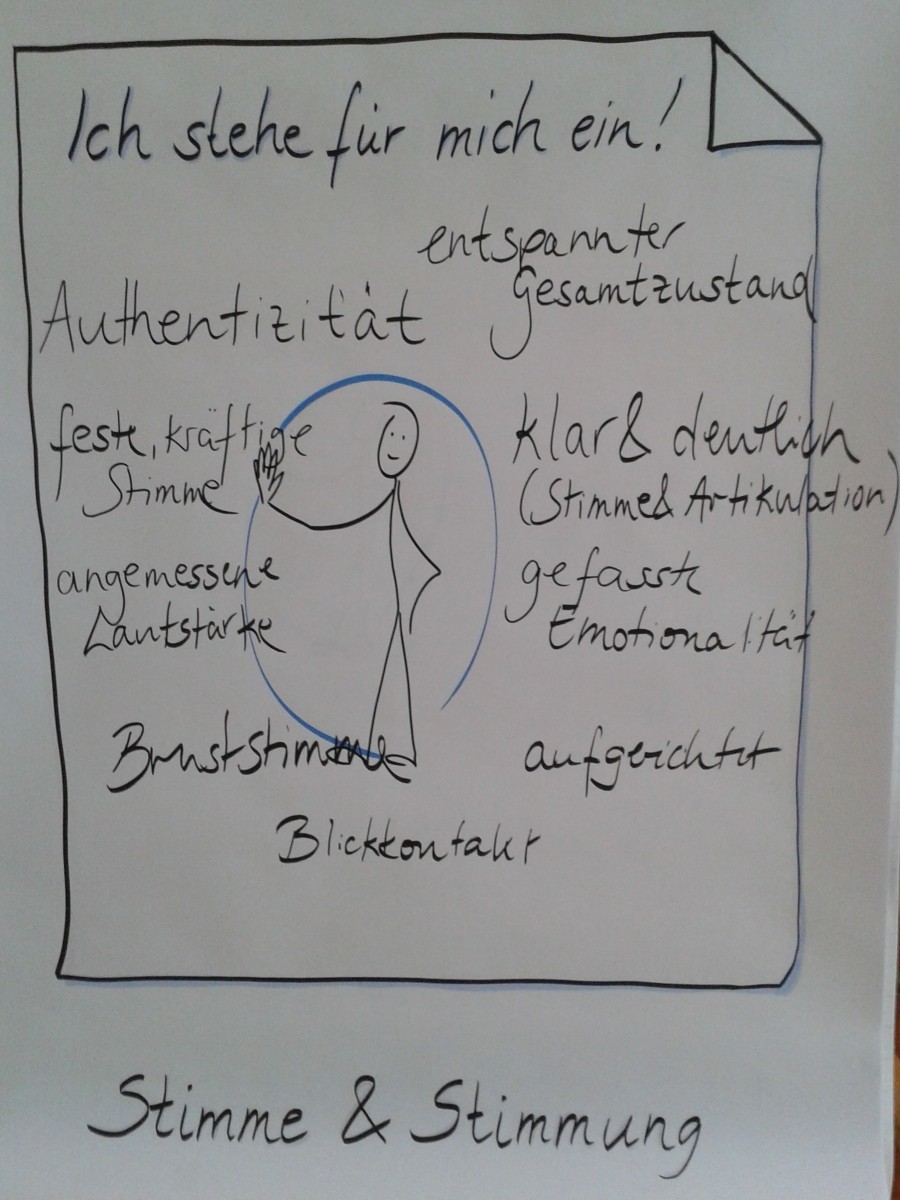 Ich stehe für mich ein!
entspannter
Gesamtzustand
Authentizität
feste, kräftige
Stimme
klar & deutlich
(Stimme & Artikulation)
angemessene
Lautstärke
gefasste
Emotionalität
Bruststimme
aufgerichtet
Blickkontakt
Stimme & Stimmung